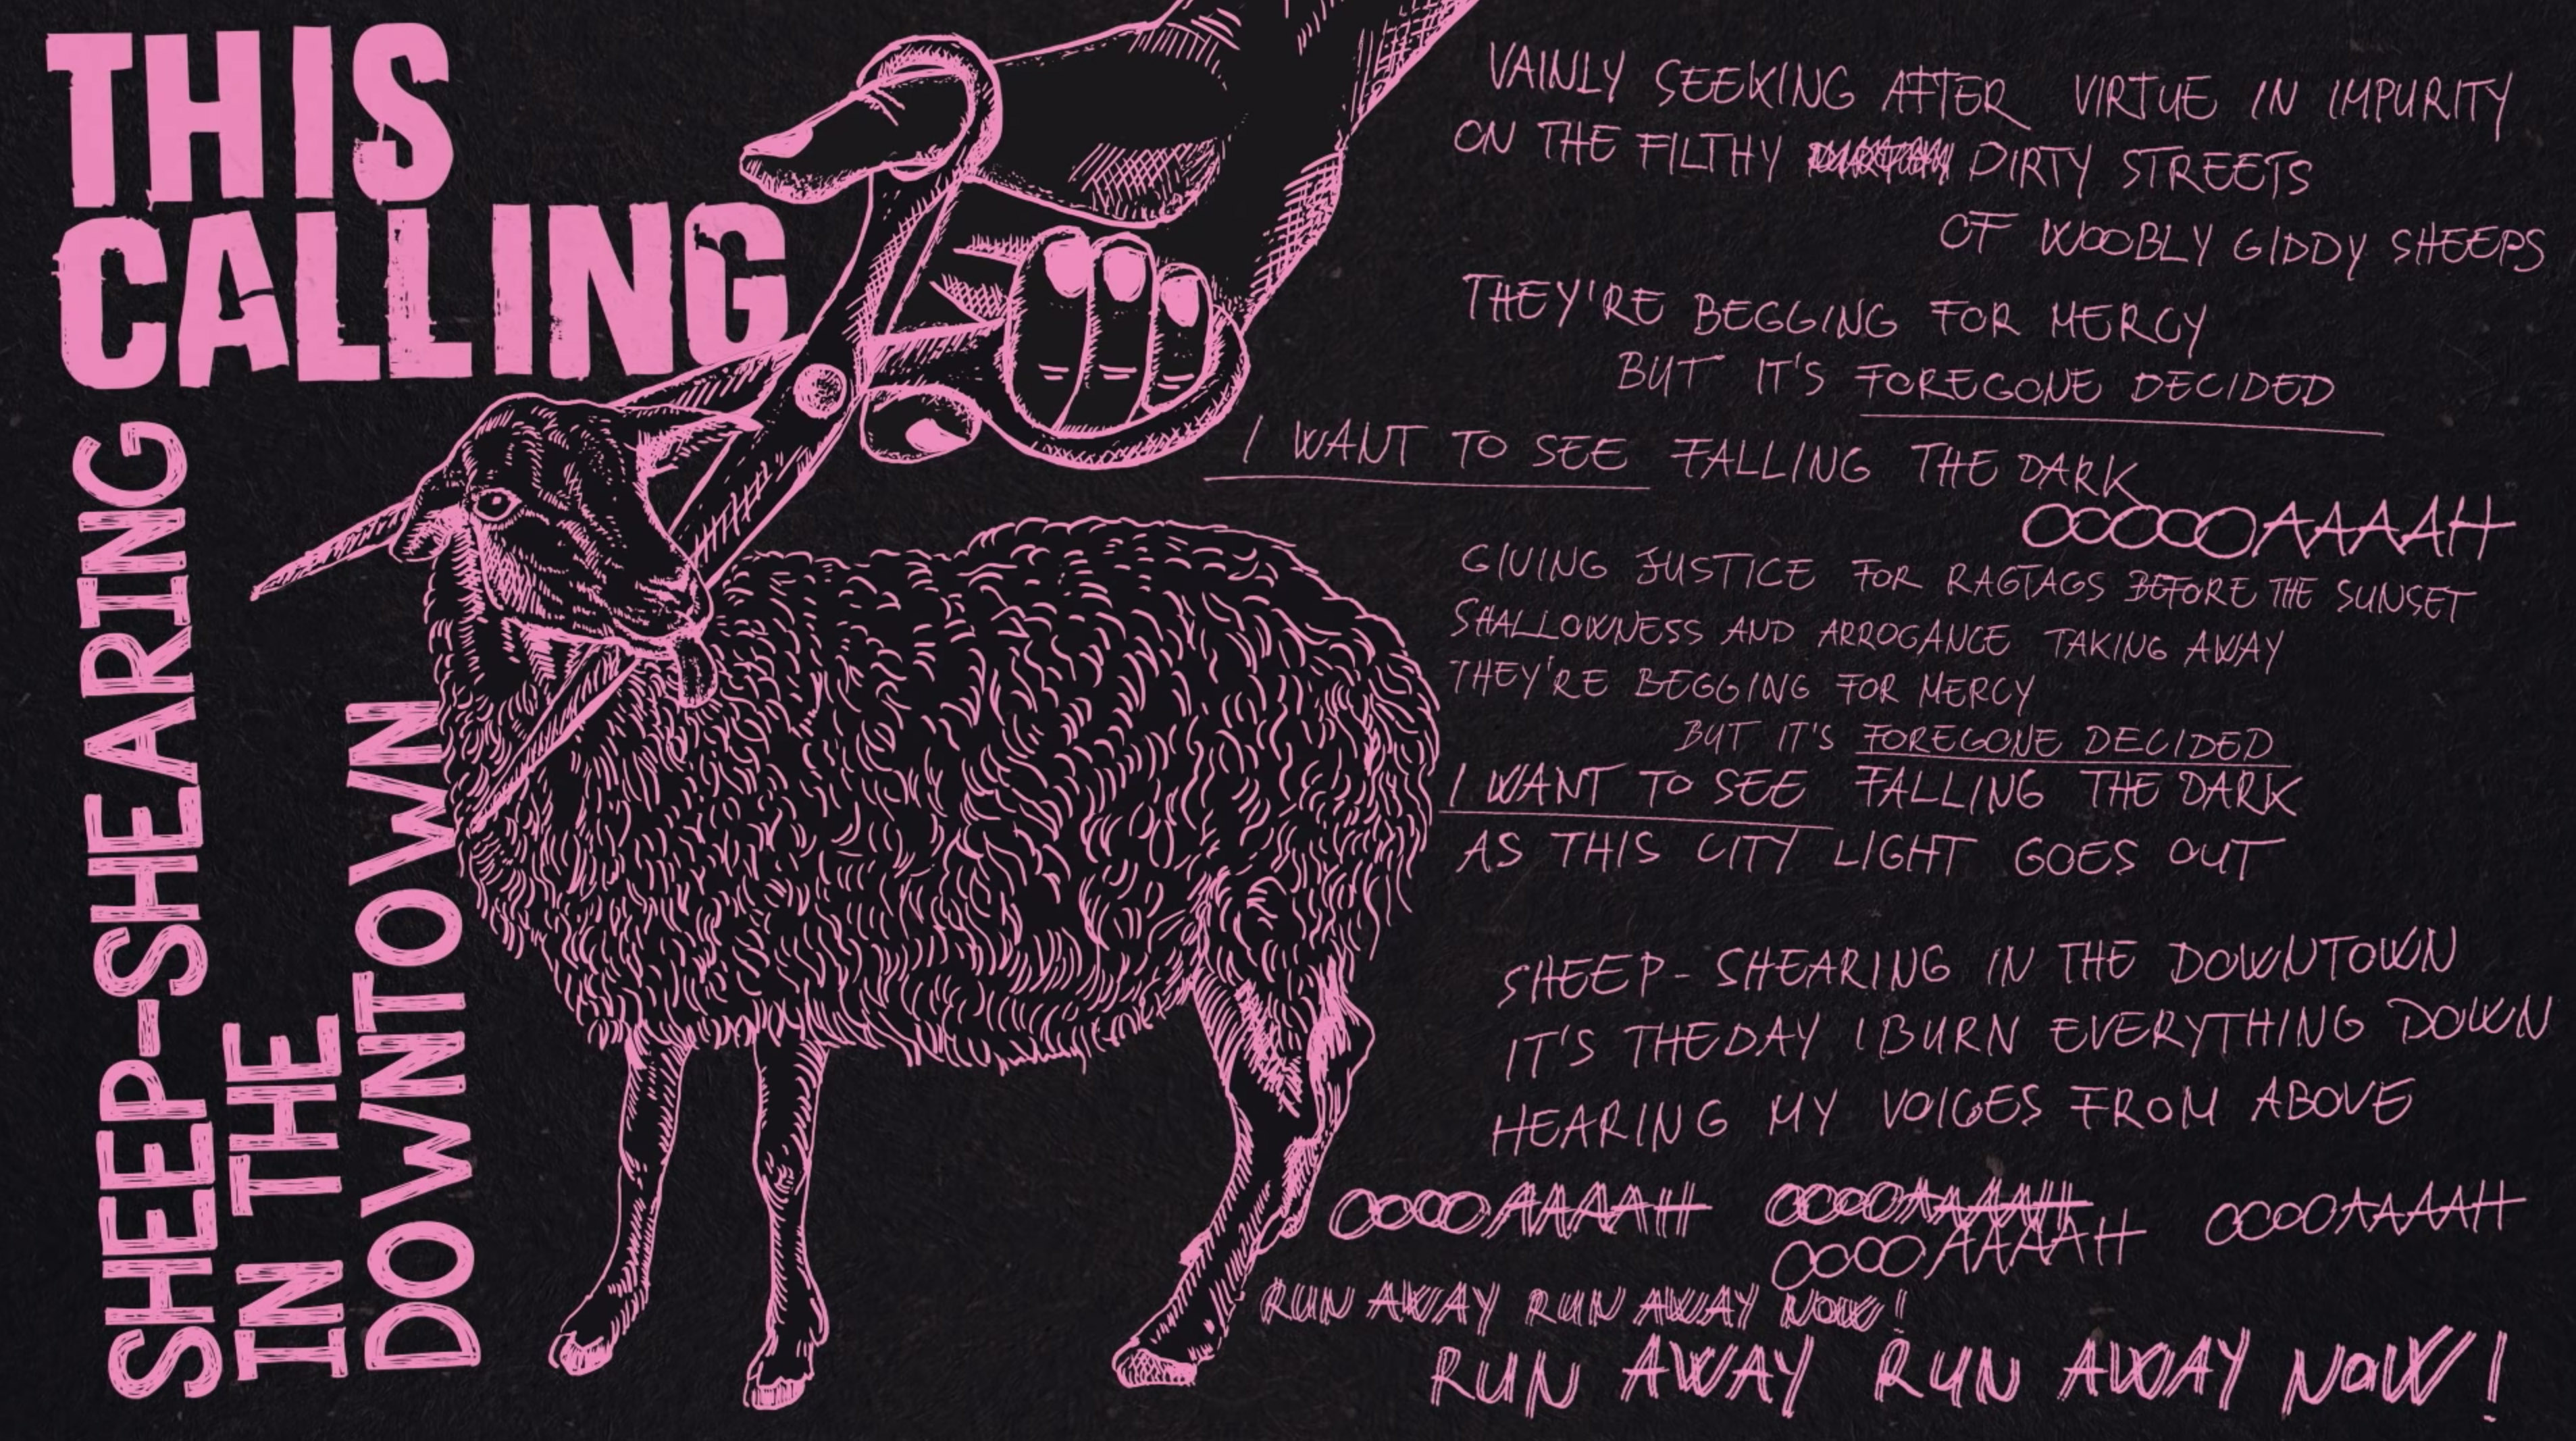 THIS
CALLING
SHEEP-SHEARING
IN THE
DOWNTOWN
VAINLY SEEKING AFTER VIRTUE IN IMPURITY
ON THE FILTHY DIRTY STREETS
OF WOOBLY GIDDY SHEEPS
THEY'RE BEGGING FOR MERCY
BUT IT'S FOREGONE DECIDED
I WANT TO SEE FALLING THE DARK
OOOOOAAAAH
GIVING JUSTICE FOR RAGTAGS BEFORE THE SUNSET
SHALLOWNESS AND ARROGANCE TAKING AWAY
THEY'RE BEGGING FOR MERCY
BUT IT'S FOREGONE DECIDED
I WANT TO SEE FALLING THE DARK
AS THIS CITY LIGHT GOES OUT
SHEEP-SHEARING IN THE DOWNTOWN
IT'S THE DAY I BURN EVERYTHING DOWN
HEARING MY VOICES FROM ABOVE
OOOOAAAAH OOOOAAAAH OOOOAAAAH
OOOOAAAAH
RUN AWAY RUN AWAY NOW!
RUN AWAY RUN AWAY NOW!